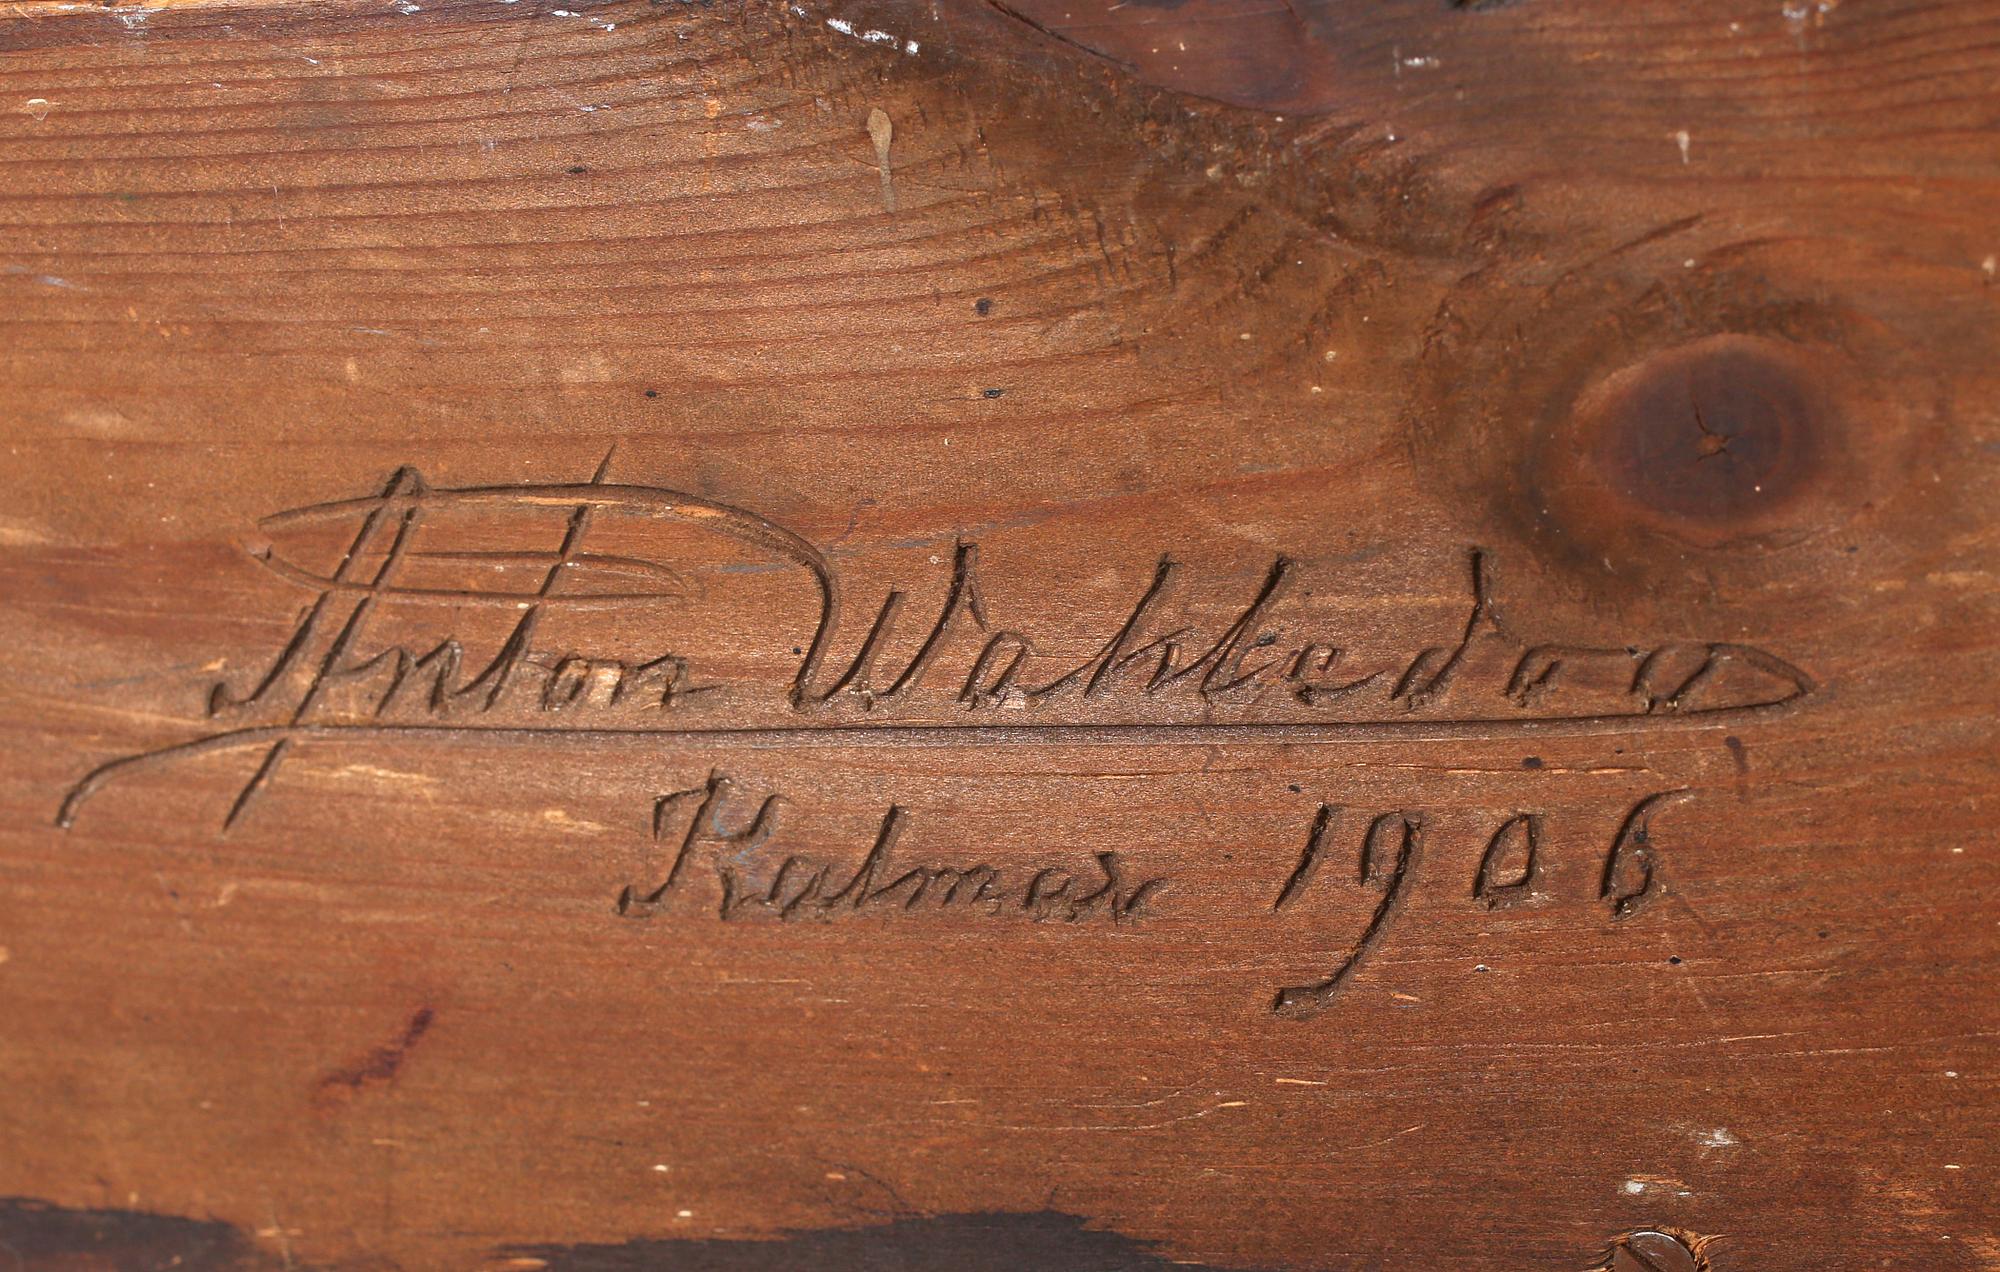 Anton Wahledow
Kalmar 1906